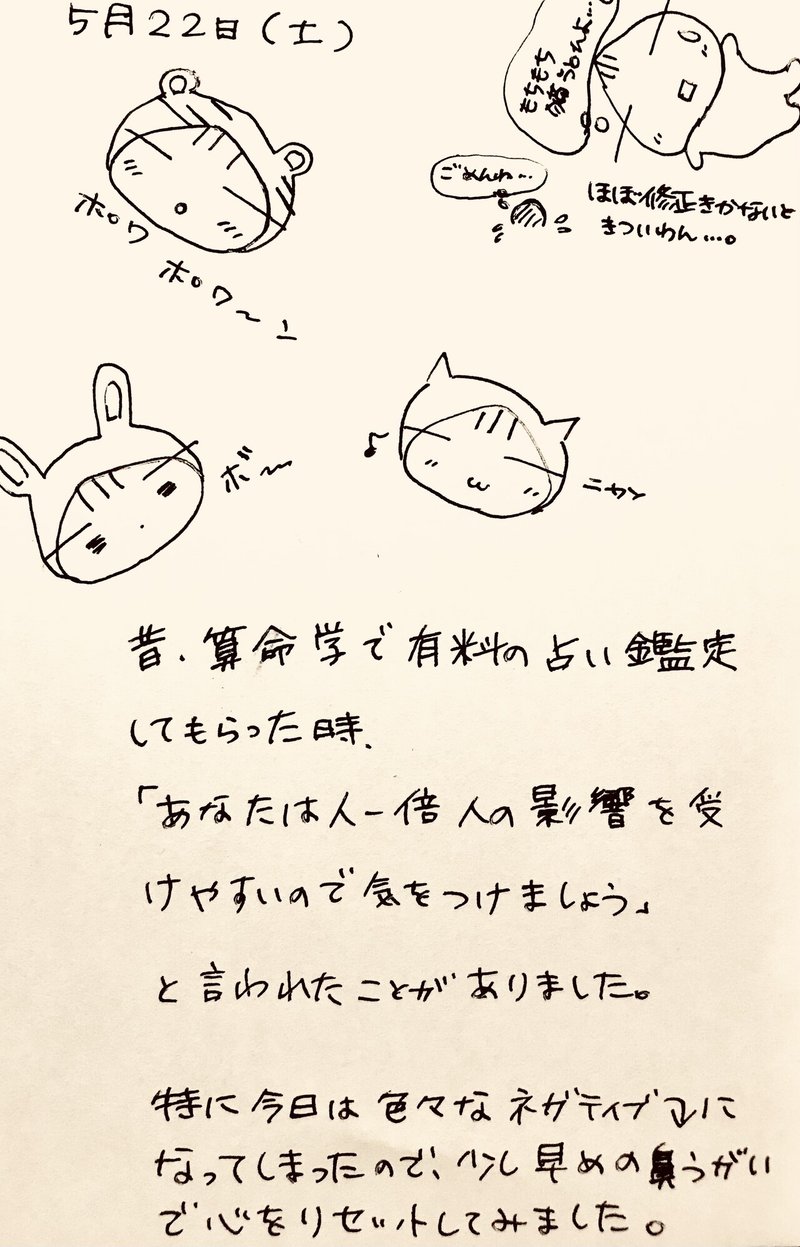 5月22日(土)
もちもち
ごめんね…
ほぼ修正きかないと
きついわん…。
ホワ
ホワ〜
ボ〜
♪
ニャン
昔、算命学で有料の占い鑑定
してもらった時、
「あなたは人一倍人の影響を受
けやすいので気をつけましょう」
と言われたことがありました。
特に今日は色々なネガティブ⤵に
なってしまったので、少し早めの鼻うがい
で心をリセットしてみました。